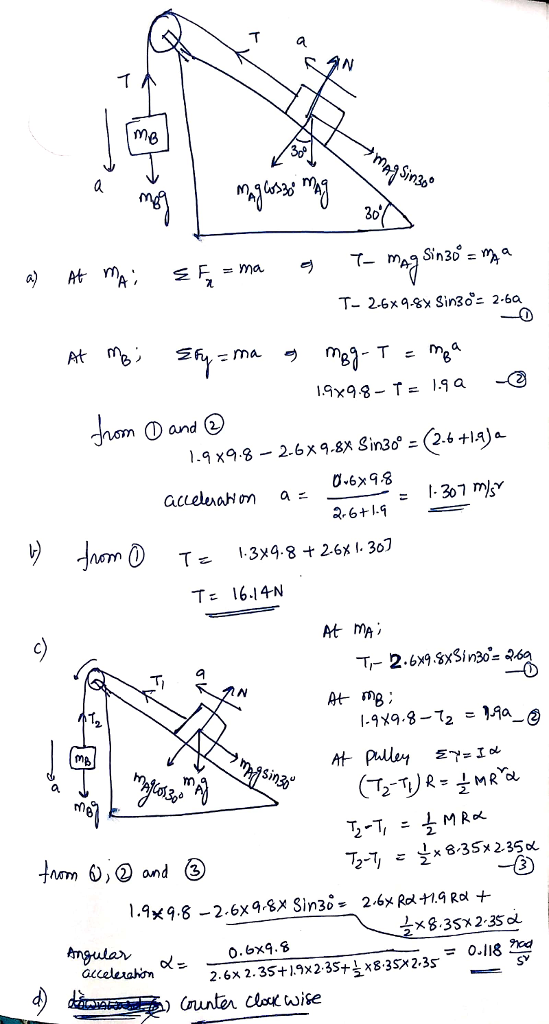 T
a
N
T
mB
30°
mAg Sin30°
a
mBg
mAg Cos30°
mAg
30°
a) At mA; ΣFx = ma ⇒ T- mAg Sin30° = mA a
T- 2.6x9.8x Sin30° = 2.6a —①
At mB; ΣFy = ma ⇒ mBg - T = mB a
1.9x9.8 - T = 1.9a —②
from ① and ②
1.9x9.8 - 2.6x9.8x Sin30° = (2.6+1.9)a
acceleration a = 0.6x9.8 / 2.6+1.9 = 1.307 m/s²
b) from ① T = 1.3x9.8 + 2.6x1.307
T = 16.14N
c)
T1
a
N
T2
mB
a
mBg
mAgCos30°
mAg
mAgsin30°
At mA;
T1- 2.6x9.8xSin30° = 2.6a —①
At mB;
1.9x9.8-T2 = 1.9a —②
At Pulley Στ=Iα
(T2-T1) R = 1/2 MR²α
T2-T1 = 1/2 MRα
T2-T1 = 1/2 x 8.35x2.35α —③
from ①, ② and ③
1.9x9.8 - 2.6x9.8x Sin30° = 2.6x Rα +1.9 Rα +
1/2 x 8.35x2.35α
Angular acceleration α = 0.6x9.8 / 2.6x2.35+1.9x2.35+1/2x8.35x2.35 = 0.118 rad/s²
d) Counter clock wise